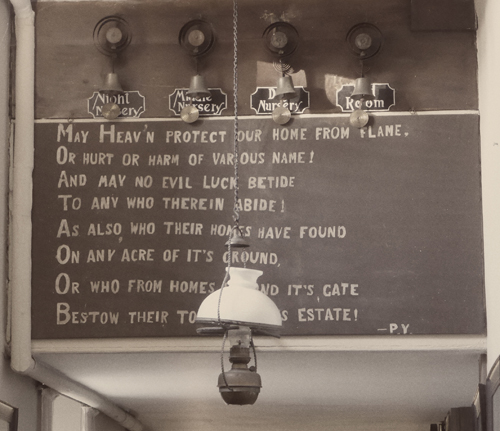 Night Nursery Nursery Nursery Room
MAY HEAV'N PROTECT OUR HOME FROM FLAME.
OR HURT OR HARM OF VARIOUS NAME!
AND MAY NO EVIL LUCK BETIDE
TO ANY WHO THEREIN ABIDE!
AS ALSO WHO THEIR HOMES HAVE FOUND
ON ANY ACRE OF IT'S GROUND,
OR WHO FROM HOMES IT'S GATE
BESTOW THEIR ESTATE!
—P.Y.